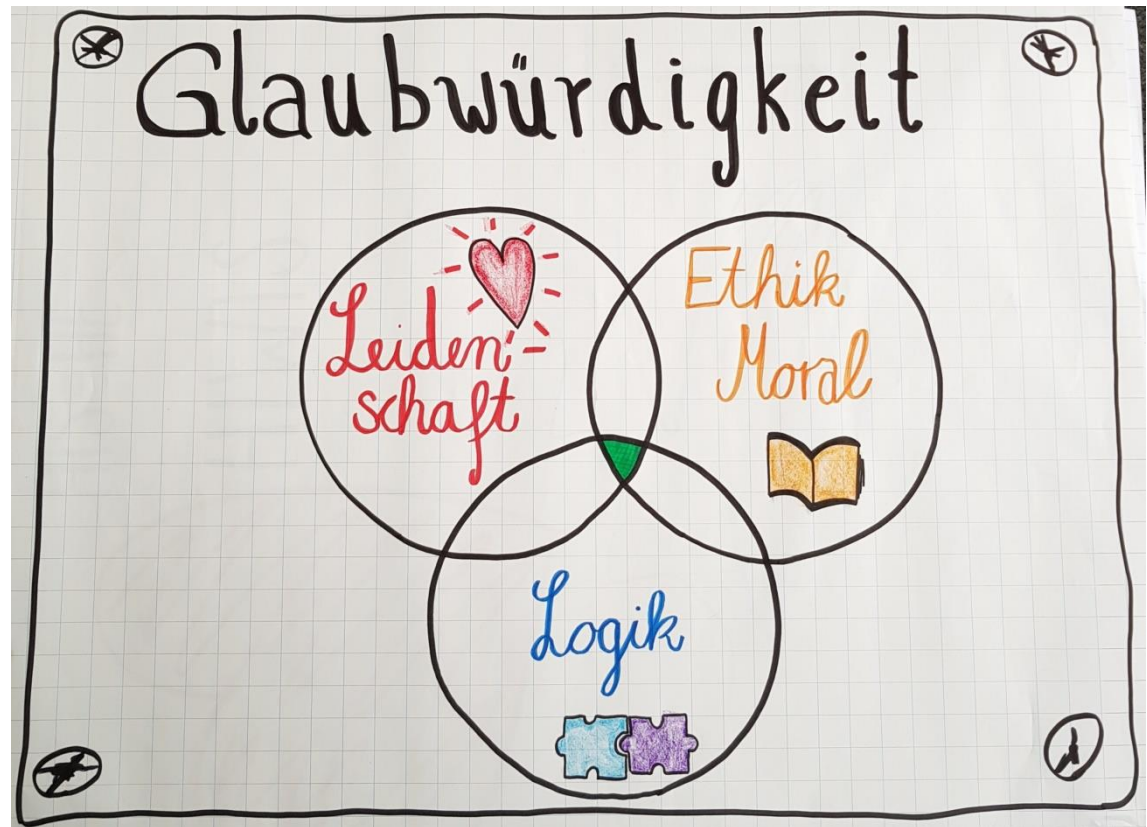 Glaubwürdigkeit
Leiden-
schaft
Ethik
Moral
Logik